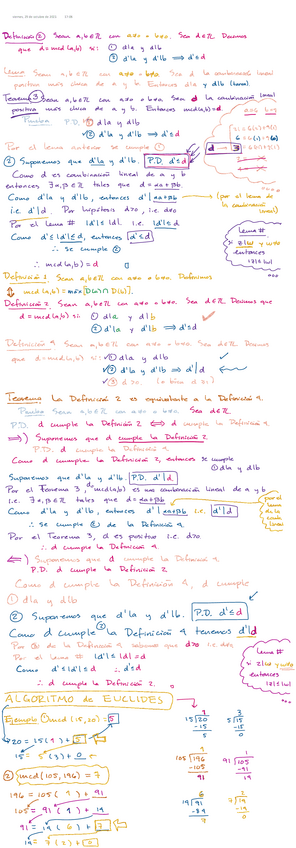 viernes, 14 de octubre de 2022
Definición 2 Sean a,b∈ℤ con a≠0 ó b≠0. Sea d∈ℤ. Decimos
que d=mcd(a,b) si: ① d|a y d|b
② d'|a y d'|b ⟹ d'≤d
Lema Sean a,b∈ℤ con a≠0 ó b≠0. Sea d la combinación lineal
positiva más chica de a y b. Entonces d|a y d|b (tarea)
Teorema 3 Sean a,b∈ℤ con a≠0 ó b≠0. Sean d la combinación lineal
positiva más chica de a y b. Entonces mcd(a,b)=d.
Prueba P.D. ① d|a y d|b
② d'|a y d'|b ⟹ d'≤d
Por el lema anterior se cumple ①
② Suponemos que d'|a y d'|b. P.D. d'≤d
Como d es combinación lineal de a y b
entonces ∃α,β∈ℤ tales que d=aα+βb
Como d'|a y d'|b, entonces d'|aα+βb
(por el lema de la combinación lineal)
i.e. d'|d. Por hipótesis d>0, i.e. d≠0
Por el Lema # |d'|≤|d|. i.e. |d'|≤d
Como d'≤|d'|≤d, entonces d'≤d
∴ Se cumple ②
∴ mcd(a,b)=d
Lema #
z|w y w≠0
entonces
|z|≤|w|
Definición 1. Sean a,b∈ℤ con a≠0 ó b≠0. Definimos
mcd(a,b)=max[D(a)∩D(b)].
Definición 2. Sean a,b∈ℤ con a≠0 ó b≠0. Sea d∈ℤ. Decimos que
d=mcd(a,b) si: ① d|a y d|b
② d'|a y d'|b ⟹ d'≤d
Definición 4 Sean a,b∈ℤ con a≠0 ó b≠0. Sea d∈ℤ. Decimos
que d=mcd(a,b) si: ① d|a y d|b
② d'|a y d'|b ⟹ d'|d
③ d≥0.
Teorema La Definición 2 es equivalente a la Definición 4.
Prueba Sean a,b∈ℤ con a≠0 ó b≠0. Sea d∈ℤ.
P.D. d cumple la Definición 2 ⟺ d cumple la Definición 4.
⟹) Suponemos que d cumple la Definición 2.
P.D. d cumple la Definición 4.
Como d cumple la Definición 2, entonces se cumple
① d|a y d|b
Suponemos que d'|a y d'|b. P.D. d'|d
Por el Teorema 3, d=mcd(a,b) es una combinación lineal de a y b
i.e. ∃α,β∈ℤ tales que d=aα+βb
Como d'|a y d'|b, entonces d'|aα+βb i.e. d'|d
∴ Se cumple ② de la Definición 4.
Por el Teorema 3, d es positivo i.e. d>0.
∴ d cumple la Definición 4.
⟸) Suponemos que d cumple la Definición 4.
P.D. d cumple la Definición 2.
Como d cumple la Definición 4, d cumple
① d|a y d|b
② Suponemos que d'|a y d'|b. P.D. d'≤d
Como d cumple ② la Definición 4 tenemos d'|d
Por el Lema # |d'|≤|d|=d
Como d'≤|d'|≤d ∴ d'≤d
∴ d cumple la Definición 2.
Lema #
z|w y w≠0
entonces
|z|≤|w|
ALGORITMO de EUCLIDES
Ejemplo ① mcd(15,20)=5
20=15(1)+5
15=5(3)+0
② mcd(105,196)=7
196=105(1)+91
105=91(1)+14
91=14(6)+7
14=7(2)+0